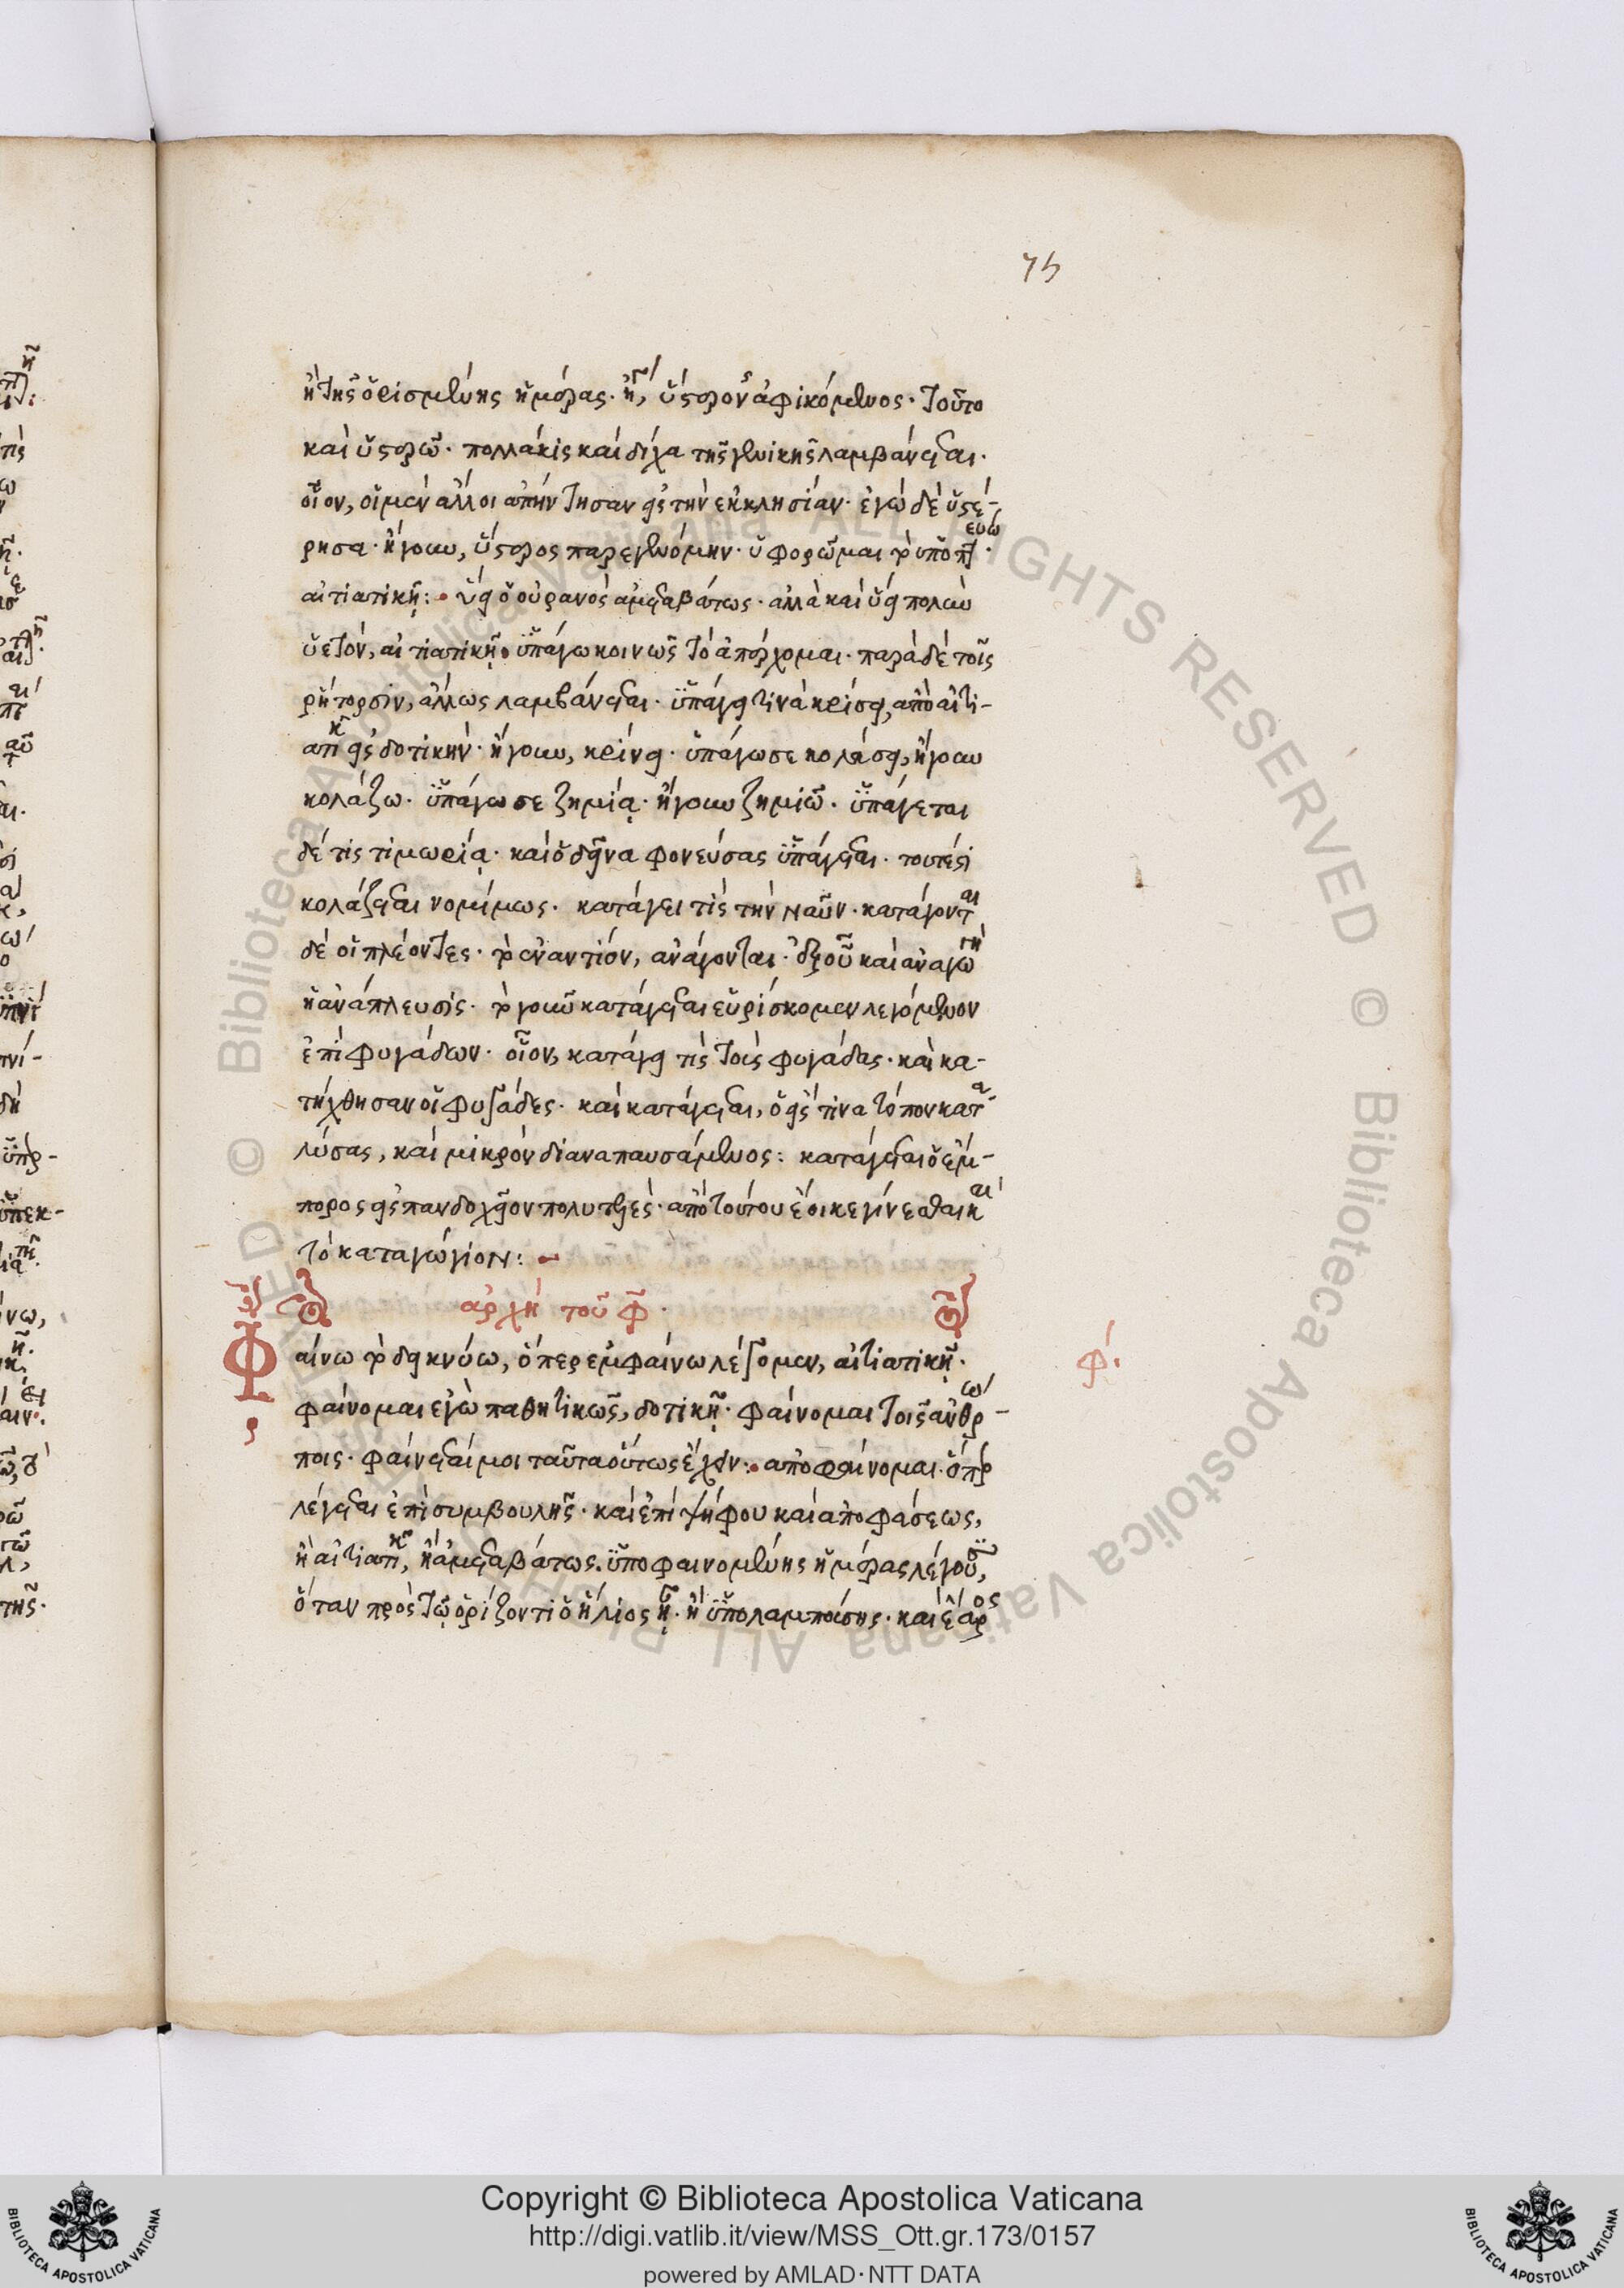 75
ἢ τῆς ὁρισμένης ἡμέρας. ἢ, ὕστερον ἀφικόμενος. τοῦτο
καὶ ὑστερῶ. πολλάκις καὶ δίχα τῆς γενικῆς λαμβάνεται.
οἷον, οἱ μὲν ἄλλοι ἀπήντησαν εἰς τὴν ἐκκλησίαν. ἐγὼ δὲ ὑστέ-
ρησα. ἤγουν, ὕστερος παρεγενόμην. ὑφορῶμαι τὸ ὑποπτεύω.
αἰτιατικῇ: ὕει ὁ οὐρανὸς ἀμεταβάτως. ἀλλὰ καὶ ὕει πολὺν
ὑετόν, αἰτιατικῇ. ὑπάγω κοινῶς τὸ ἀπέρχομαι. παρὰ δὲ τοῖς
ῥήτορσιν, ἄλλως λαμβάνεται. ὑπάγει τινὰ κρίσει, ἀπὸ αἰτι-
ατικ εἰς δοτικήν. ἤγουν, κρίνει. ὑπάγω σε κολάσει, ἤγουν
κολάζω. ὑπάγω σε ζημίᾳ. ἤγουν ζημιῶ. ὑπάγεται
δέ τις τιμωρίᾳ. καὶ ὁ δεῖνα φονεύσας ὑπάγεται. τουτέστι
κολάζεται νομίμως. κατάγει τὶς τὴν ναῦν. κατάγονται
δὲ οἱ πλέοντες. τὸ ἐναντίον, ἀνάγονται. ἐξ οὗ καὶ ἀναγωγὴ
ἡ ἀνάπλευσις. τὸ γοῦν κατάγεται εὑρίσκομεν λεγόμενον
ἐπὶ φυγάδων. οἷον, κατάγει τὶς τοὺς φυγάδας. καὶ κα-
τήχθησαν οἱ φυγάδες. καὶ κατάγεται, ὁ εἰς τινα τόπον κατα-
λύσας, καὶ μικρὸν διαναπαυσάμενος: κατάγεται ὁ ἔμ-
πορος εἰς πανδοχεῖον πολυτελές. ἀπὸ τούτου ἔοικε γίνεσθαι καὶ
τὸ καταγώγιον:
ἀρχὴ τοῦ Φ.
Φαίνω τὸ δεικνύω, ὅπερ ἐμφαίνω λέγομεν, αἰτιατικῇ.
φ:
φαίνομαι ἐγὼ παθητικῶς, δοτικῇ. φαίνομαι τοῖς ἀνθρώ-
ποις. φαίνεταί μοι ταῦτα οὕτως ἔχειν: ἀποφαίνομαι. ὅπερ
λέγεται ἐπὶ συμβουλῆς. καὶ ἐπὶ ψήφου καὶ ἀποφάσεως,
ἢ αἰτιατικ, ἢ ἀμεταβάτως. ὑποφαινομένης ἡμέρας λέγου,
ὅταν πρὸς τῷ ὁρίζοντι ὁ ἥλιος ᾖ. ἢ ὑπολαμπούσης. καὶ ἔαρος